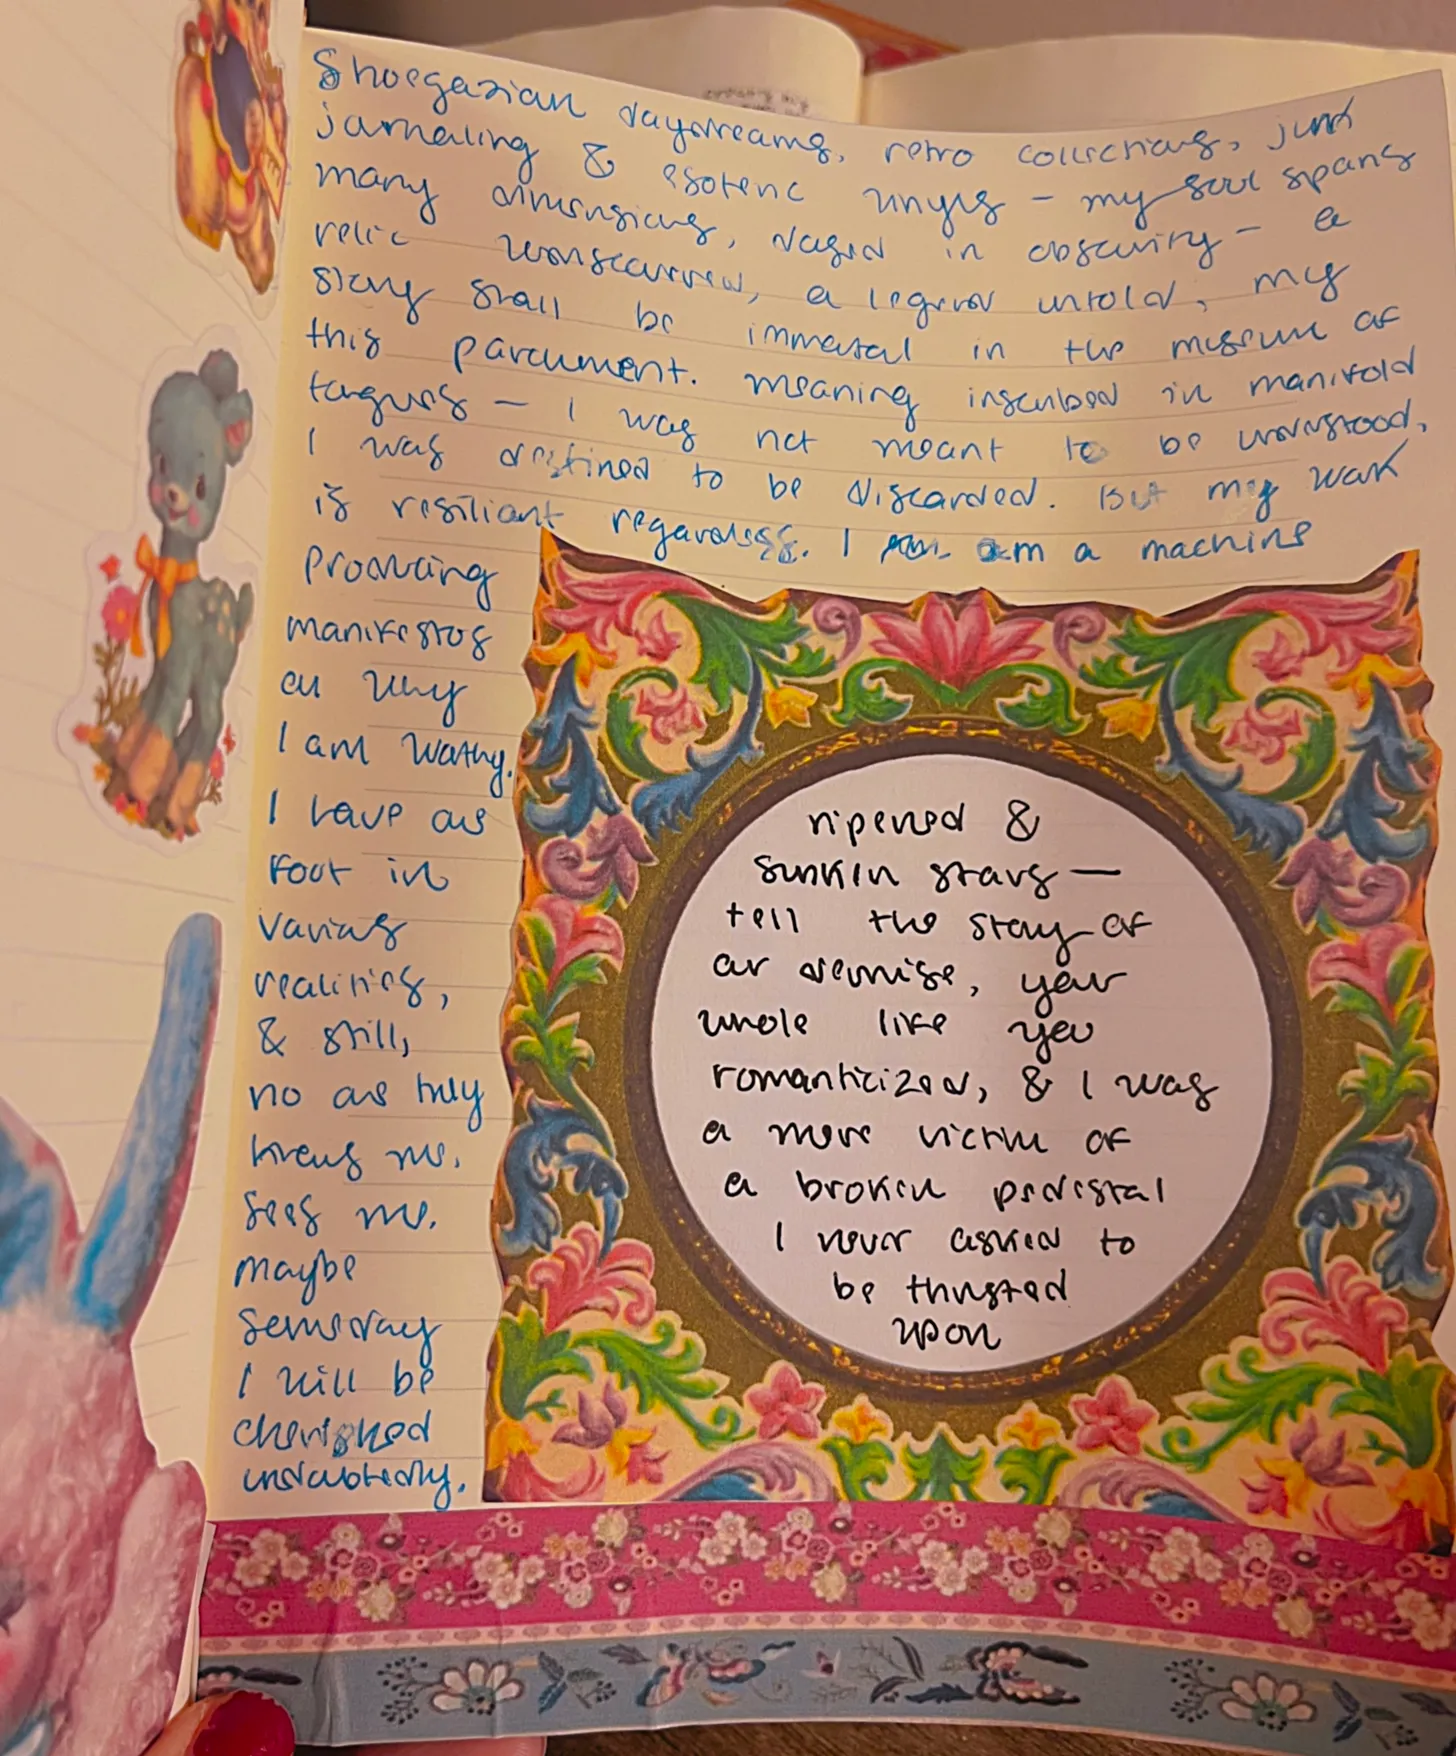 Shoegazian daydreams, retro collections, junk
journaling & esoteric vinyls – my soul spans
many dimensions, dazed in obscurity – a
relic undiscovered, a legend untold, my
story shall be immortal in the museum of
this parchment. meaning inscribed in manifold
tongues – I was not meant to be understood,
I was destined to be discarded. But my work
is resiliant regardless. I am a machine
producing
manifestos
on why
I am worthy.
I have one
foot in
various
realities,
& still,
no one truly
knows me.
sees me.
maybe
someday
I will be
cherished
undoubtedly.
ripened &
sunken stars —
tell the story of
our demise, your
whole life you
romanticized, & I was
a mere victim of
a broken pedestal
I never asked to
be thrusted
upon